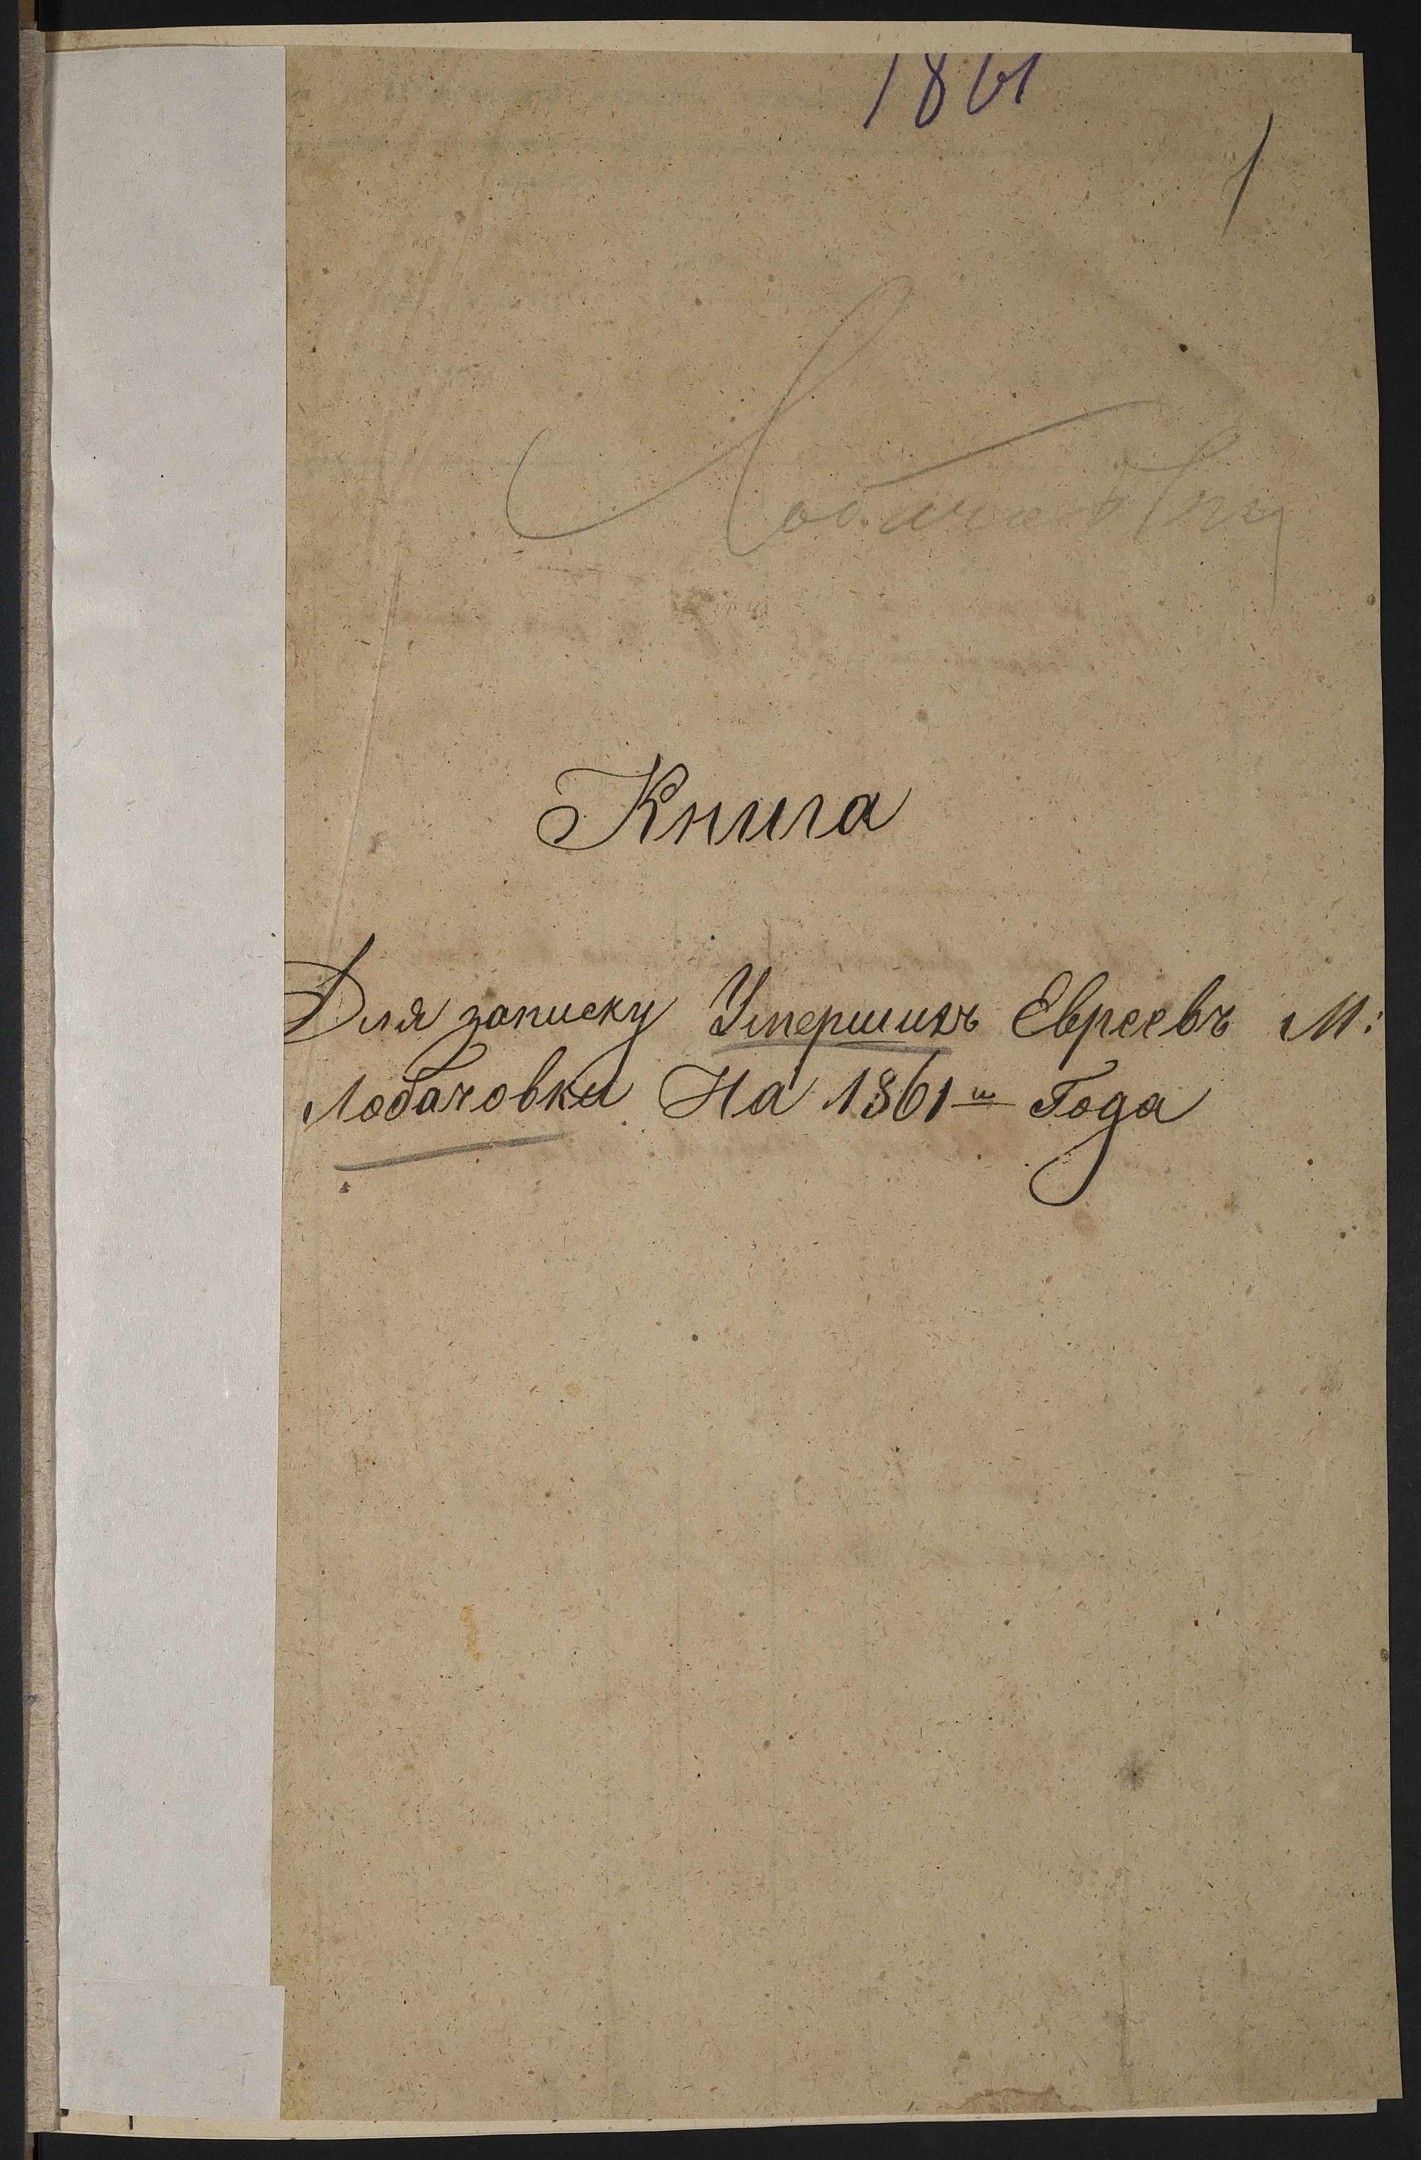 1861
1
Книга
Для записку Умершихъ Евреевъ М:
Лобачовки На 1861ш Года